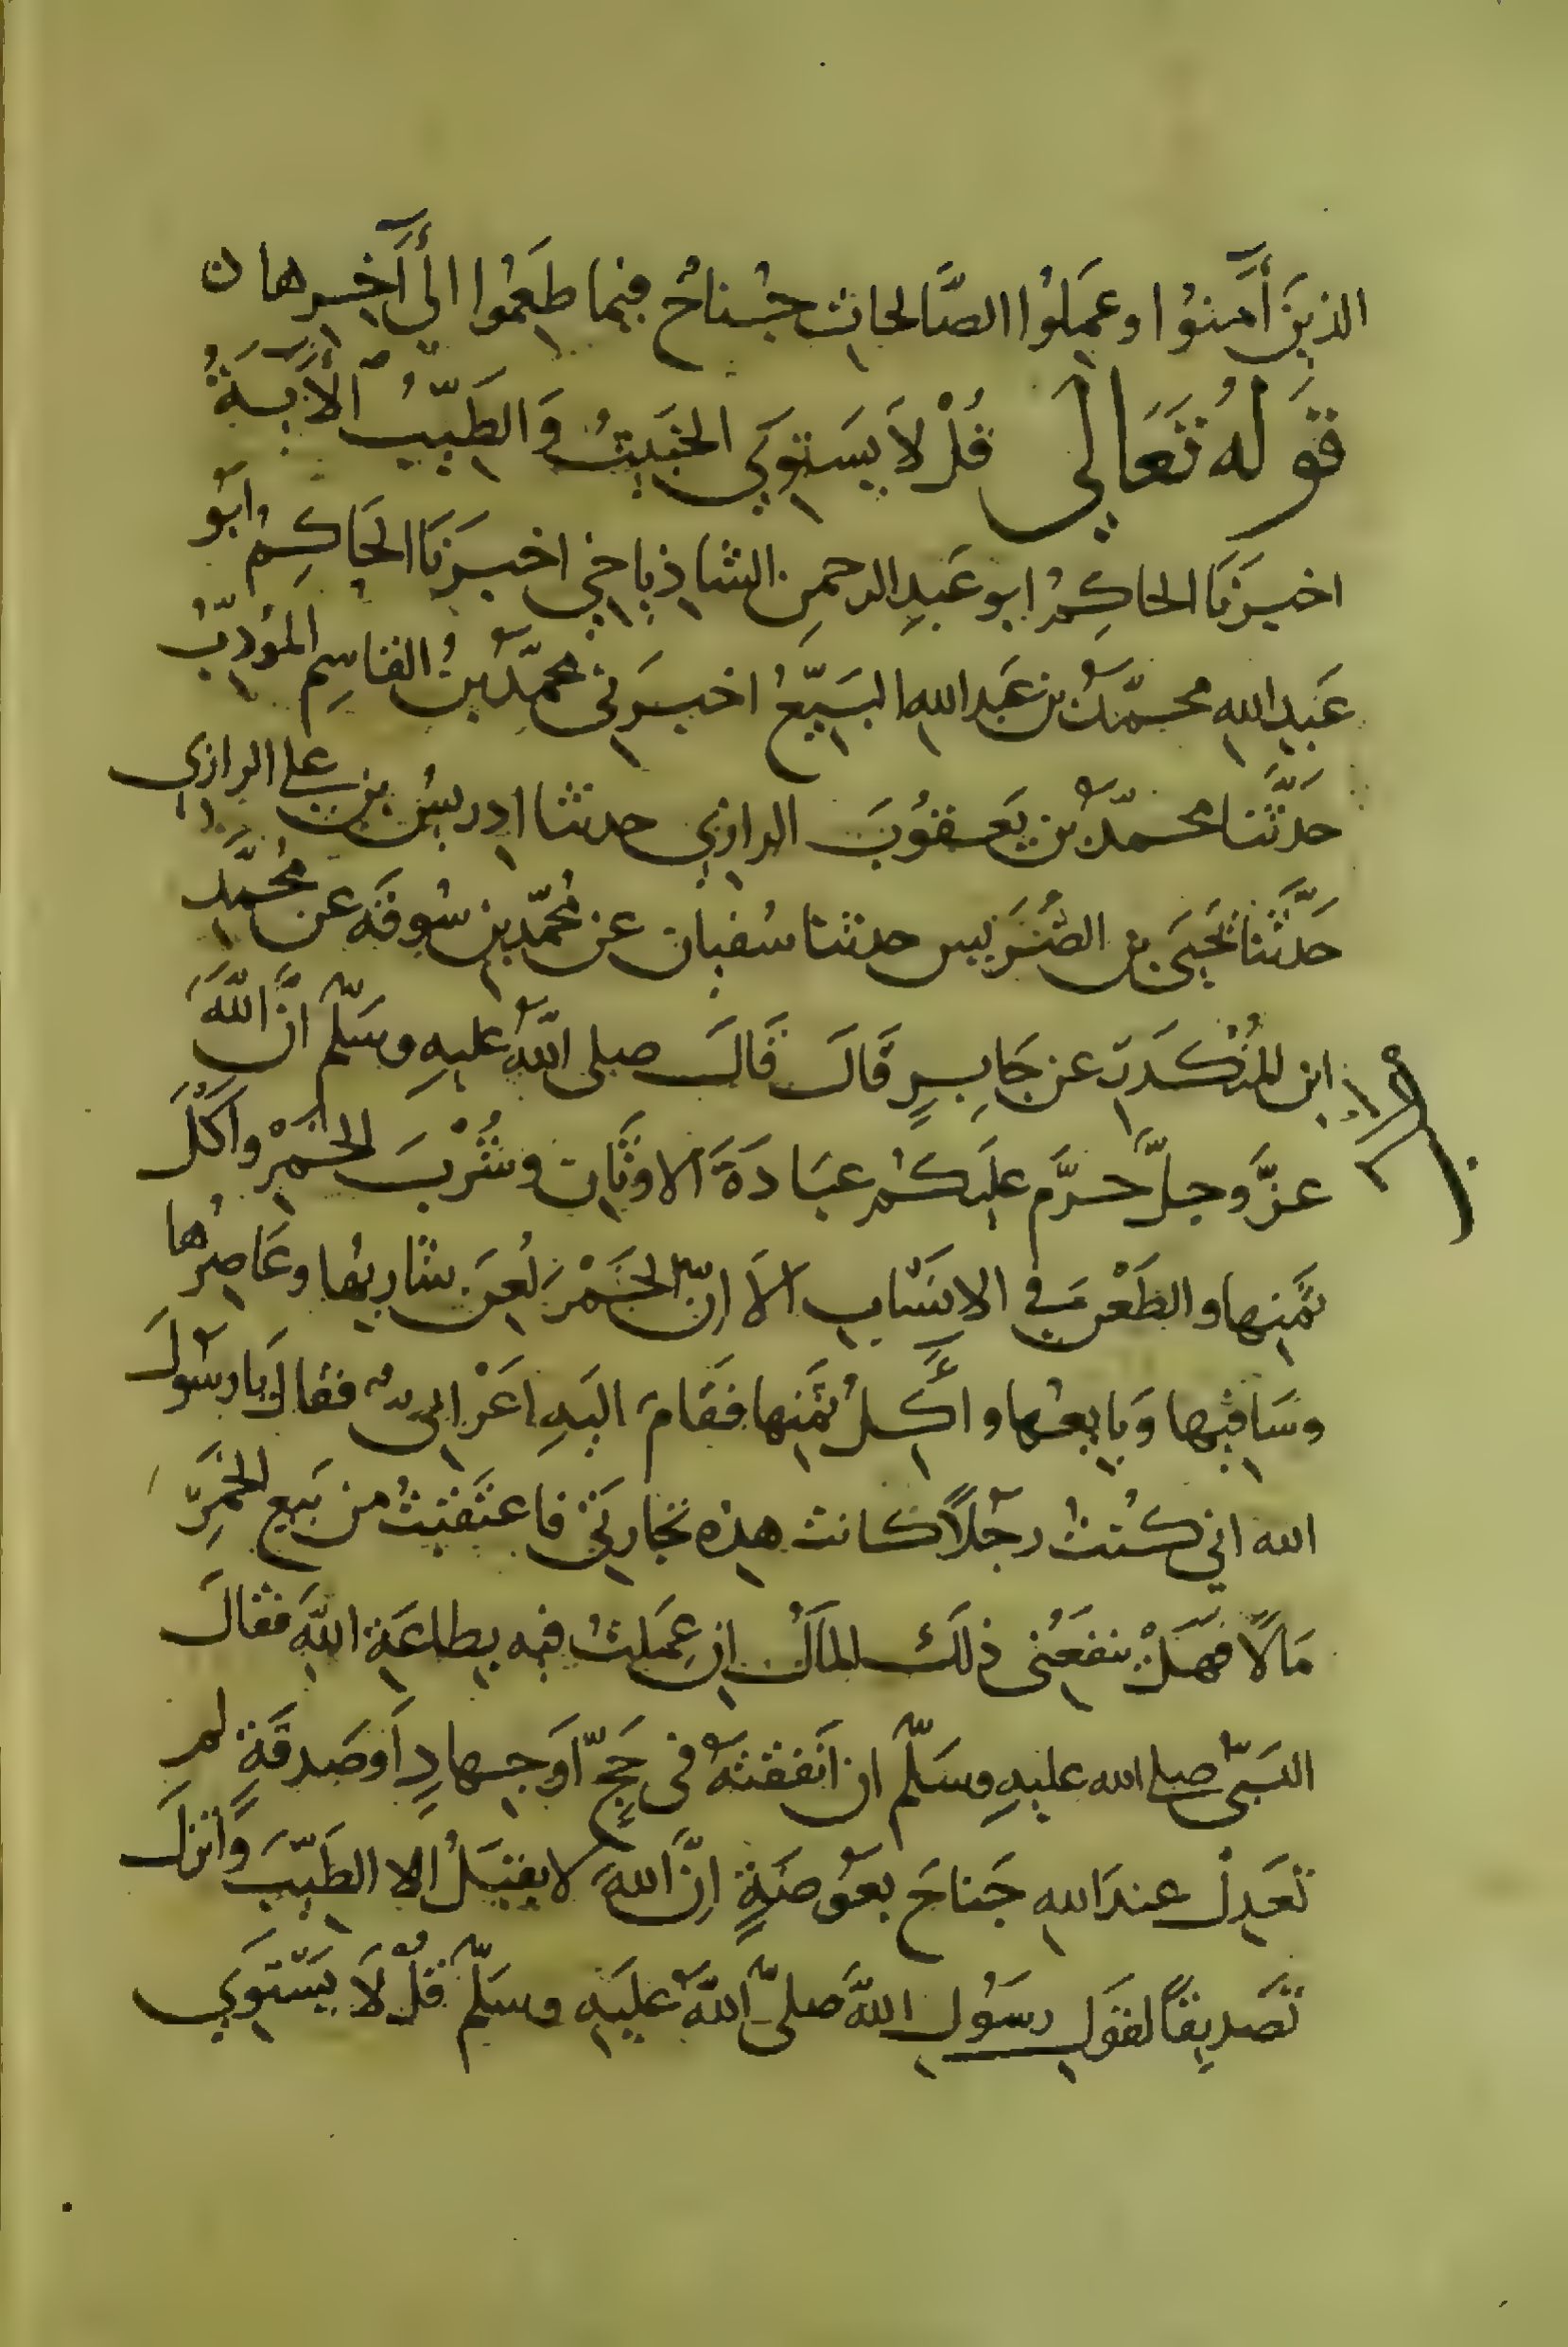 الذينَ أمنوُا وعَمِلوُا الصَّالحاتِ جُناحٌ فيما طَعِمُوا الي آخِرها ن
قَولهُ تَعَالي قُلْ لاَ يَستوِي الخبَيثُ وَالطَيّبُ الآيَةُ
اخبرَنَا الحاكِمُ ابو عَبدِ الرحمنِ الشاذياخي اخبرَنَا الحَاكِمُ ابَو
عَبدِ اللهِ محمَّدُ بن عَبدِ اللهِ البَيّعُ اخبرَني محمّدُ بنُ القاسِم المؤدّبُ
حَدَّثَنا محمّدُ بن يَعقوُبَ الرازي حدثنا ادريسُ بن علي الرازي
حَدَّثَنا يَحيَى بن الضُرَيس حدثنا سُفيان عن مُحمّد بن سُوقَه عن مُحَمَّد
ابن المُنْكَدِر عن جَابِرٍ قَالَ قَالَ صلى اللهُ عليهِ وسَلّم انَّ اللهَ
عزَّ وجلَّ حرَّم علَيكُم عبَادَةَ الاوثَانِ وشُرْبَ الخَمْرِ واَكْلَ
ثمَنِها والطَعْنَ في الانسَابِ الاَ اِنّ الخَمْرَ لُعِنَ شاربُها وعَاصِرُها
وسَاقيها وَبايعُها واَكِلُ ثمَنِها فقَامَ اليَهِ اعَرْابىٌ فقالَ يَا رسوُلَ
الله اني كُنتُ رجُلاً كانت هذِه تجَارتَي فاعتَقَبتُ من بَيعِ الخَمرِ
مَالاً فهَلْ ينفعَنُى ذلَك المَالُ اِن عِمَلتُ فيه بِطاعَةِ اللهِ فقالَ
النبَىّ صلي الله عليهِ وسَلّم ان اَنفقتهُ في حَجّ اوَ جِهادٍ اَو صَدقَةٍ لم
تَعدِلْ عندَ اللهِ جَناحَ بعَوُضَةٍ اِنَّ اللهَ لا يقبَلُ اِلا الطَيّبَ وَاَنزلَ
تَصَديقاً لقوَلِ رسَوُلِ اللهِ صَلىّ اللهُ عليَهِ وسَلّم قُلْ لاَ يَسَتوَي